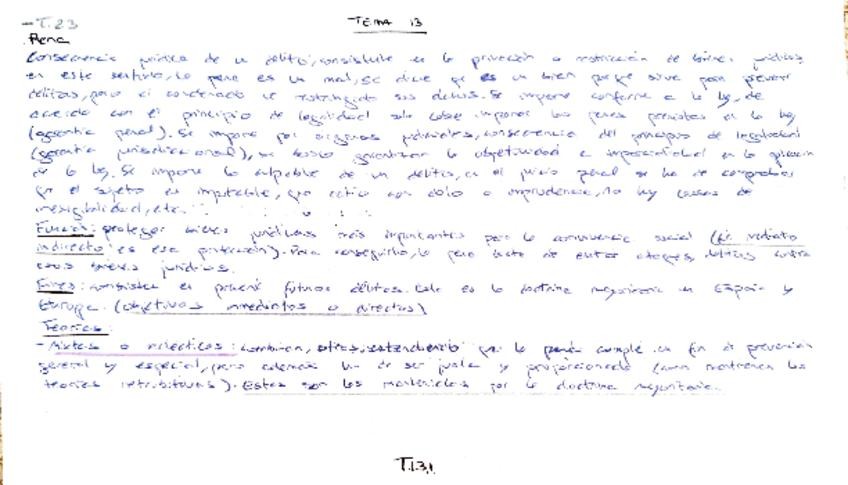 -T.23 TEMA 13
Pena
Consecuencia jurídica de un delito, consistente en la privación o restricción de bienes jurídicos,
en este sentido, la pena es un mal, se dice que es un bien porque sirve para prevenir
delitos, para el condenado ve restringido sus dchos. Se impone conforme a la ley, de
acuerdo con el principio de legalidad solo cabe imponer las penas previstas en la ley
(garantía penal). Se impone por órganos judiciales, consecuencia del principio de legalidad
(garantía jurisdiccional), se busca garantizar la objetividad e imparcialidad en la aplicación
de la ley. Se impone al culpable de un delito, en el juicio penal se ha de comprobar
que el sujeto es imputable, que actúa con dolo o imprudencia, no hay causas de
inexigibilidad, etc.
Función: proteger bienes jurídicos más importantes para la convivencia social (fin mediato
indirecto es esa protección). Para conseguirlo, la pena trata de evitar ataques contra
esos bienes jurídicos.
Fines: consisten en prevenir futuros delitos. Esta es la doctrina mayoritaria en España y
Europa. (objetivos inmediatos o directos)
Teorías:
-Mixtas o eclécticas: combinan, que la pena cumple un fin de prevención
general y especial, pero además ha de ser justa y proporcionada (aun mantienen las
teorías retributivas). Estas son las mantenidas por la doctrina mayoritaria.
T.13.1